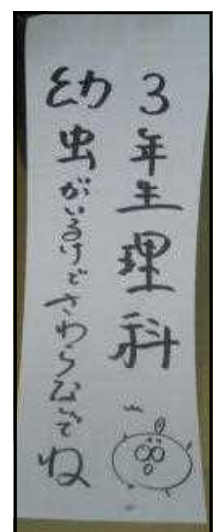 3年生理科
幼虫がいるけどさわらないでね